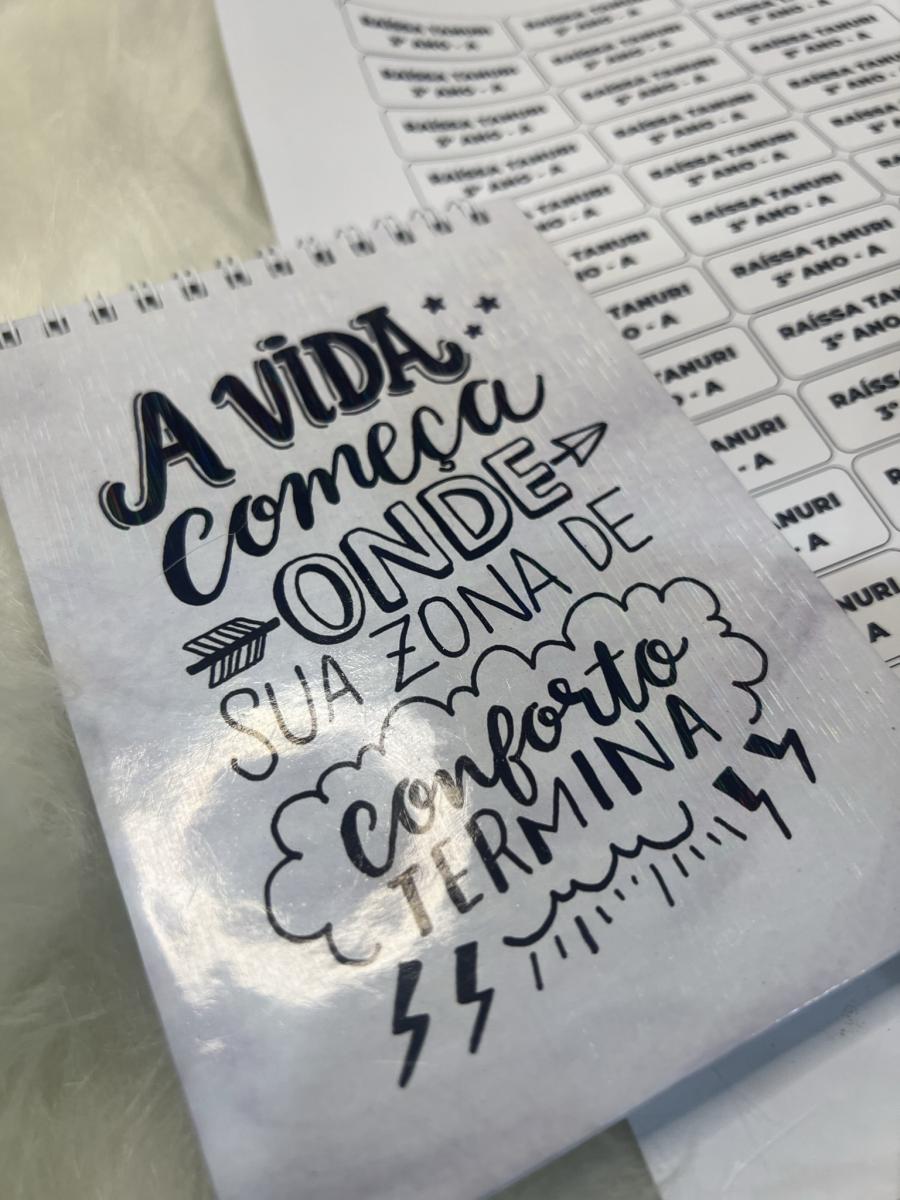 A VIDA
começa
ONDE
SUA ZONA DE
conforto
TERMINA
RAÍSSA TANURI
3º ANO - A
RAÍSSA TANURI
3º ANO - A
RAÍSSA TANURI
3º ANO - A
RAÍSSA TANURI
3º ANO - A
RAÍSSA TANURI
3º ANO - A
RAÍSSA TANURI
3º ANO - A
RAÍSSA TANURI
3º ANO - A
RAÍSSA TANURI
3º ANO - A
RAÍSSA TANURI
3º ANO - A
RAÍSSA TANURI
3º ANO - A